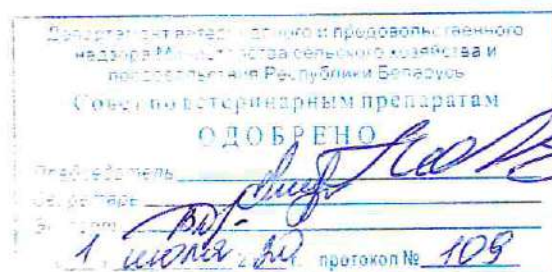 Департамент ветеринарного и продовольственного
надзора Министерства сельского хозяйства и
продовольствия Республики Беларусь
Совет по ветеринарным препаратам
ОДОБРЕНО
Председатель
Секретарь
1 июля 20 г. протокол № 109